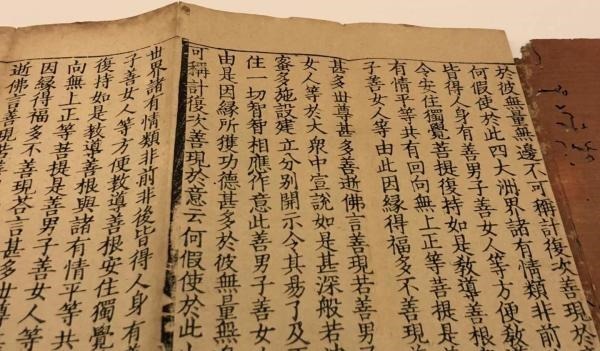 於彼無量無邊不可稱計復次善現於
何假使於此四大洲界諸有情類非前
皆得人身有善男子善女人等方便教
令安住獨覺菩提復持如是教導善根
有情平等共有回向無上正等菩提善
子善女人等由此因緣得福多不善現
甚多世尊甚多善逝佛言善現若善男
女人等於大眾中宣說如是甚深般若
蜜多施設建立分別開示令其易了及
住一切智智相應作意此善男子善女
由是因緣所獲功德甚多於彼無量無
可稱計復次善現於意云何假使於此
世界諸有情類非前非後皆得人身有善
子善女人等方便教導善根安住獨覺
復持如是教導善根與諸有情平等共
向無上正等菩提是善男子善女人等
因緣得福多不善現答言甚多世尊
逝佛言善現若善